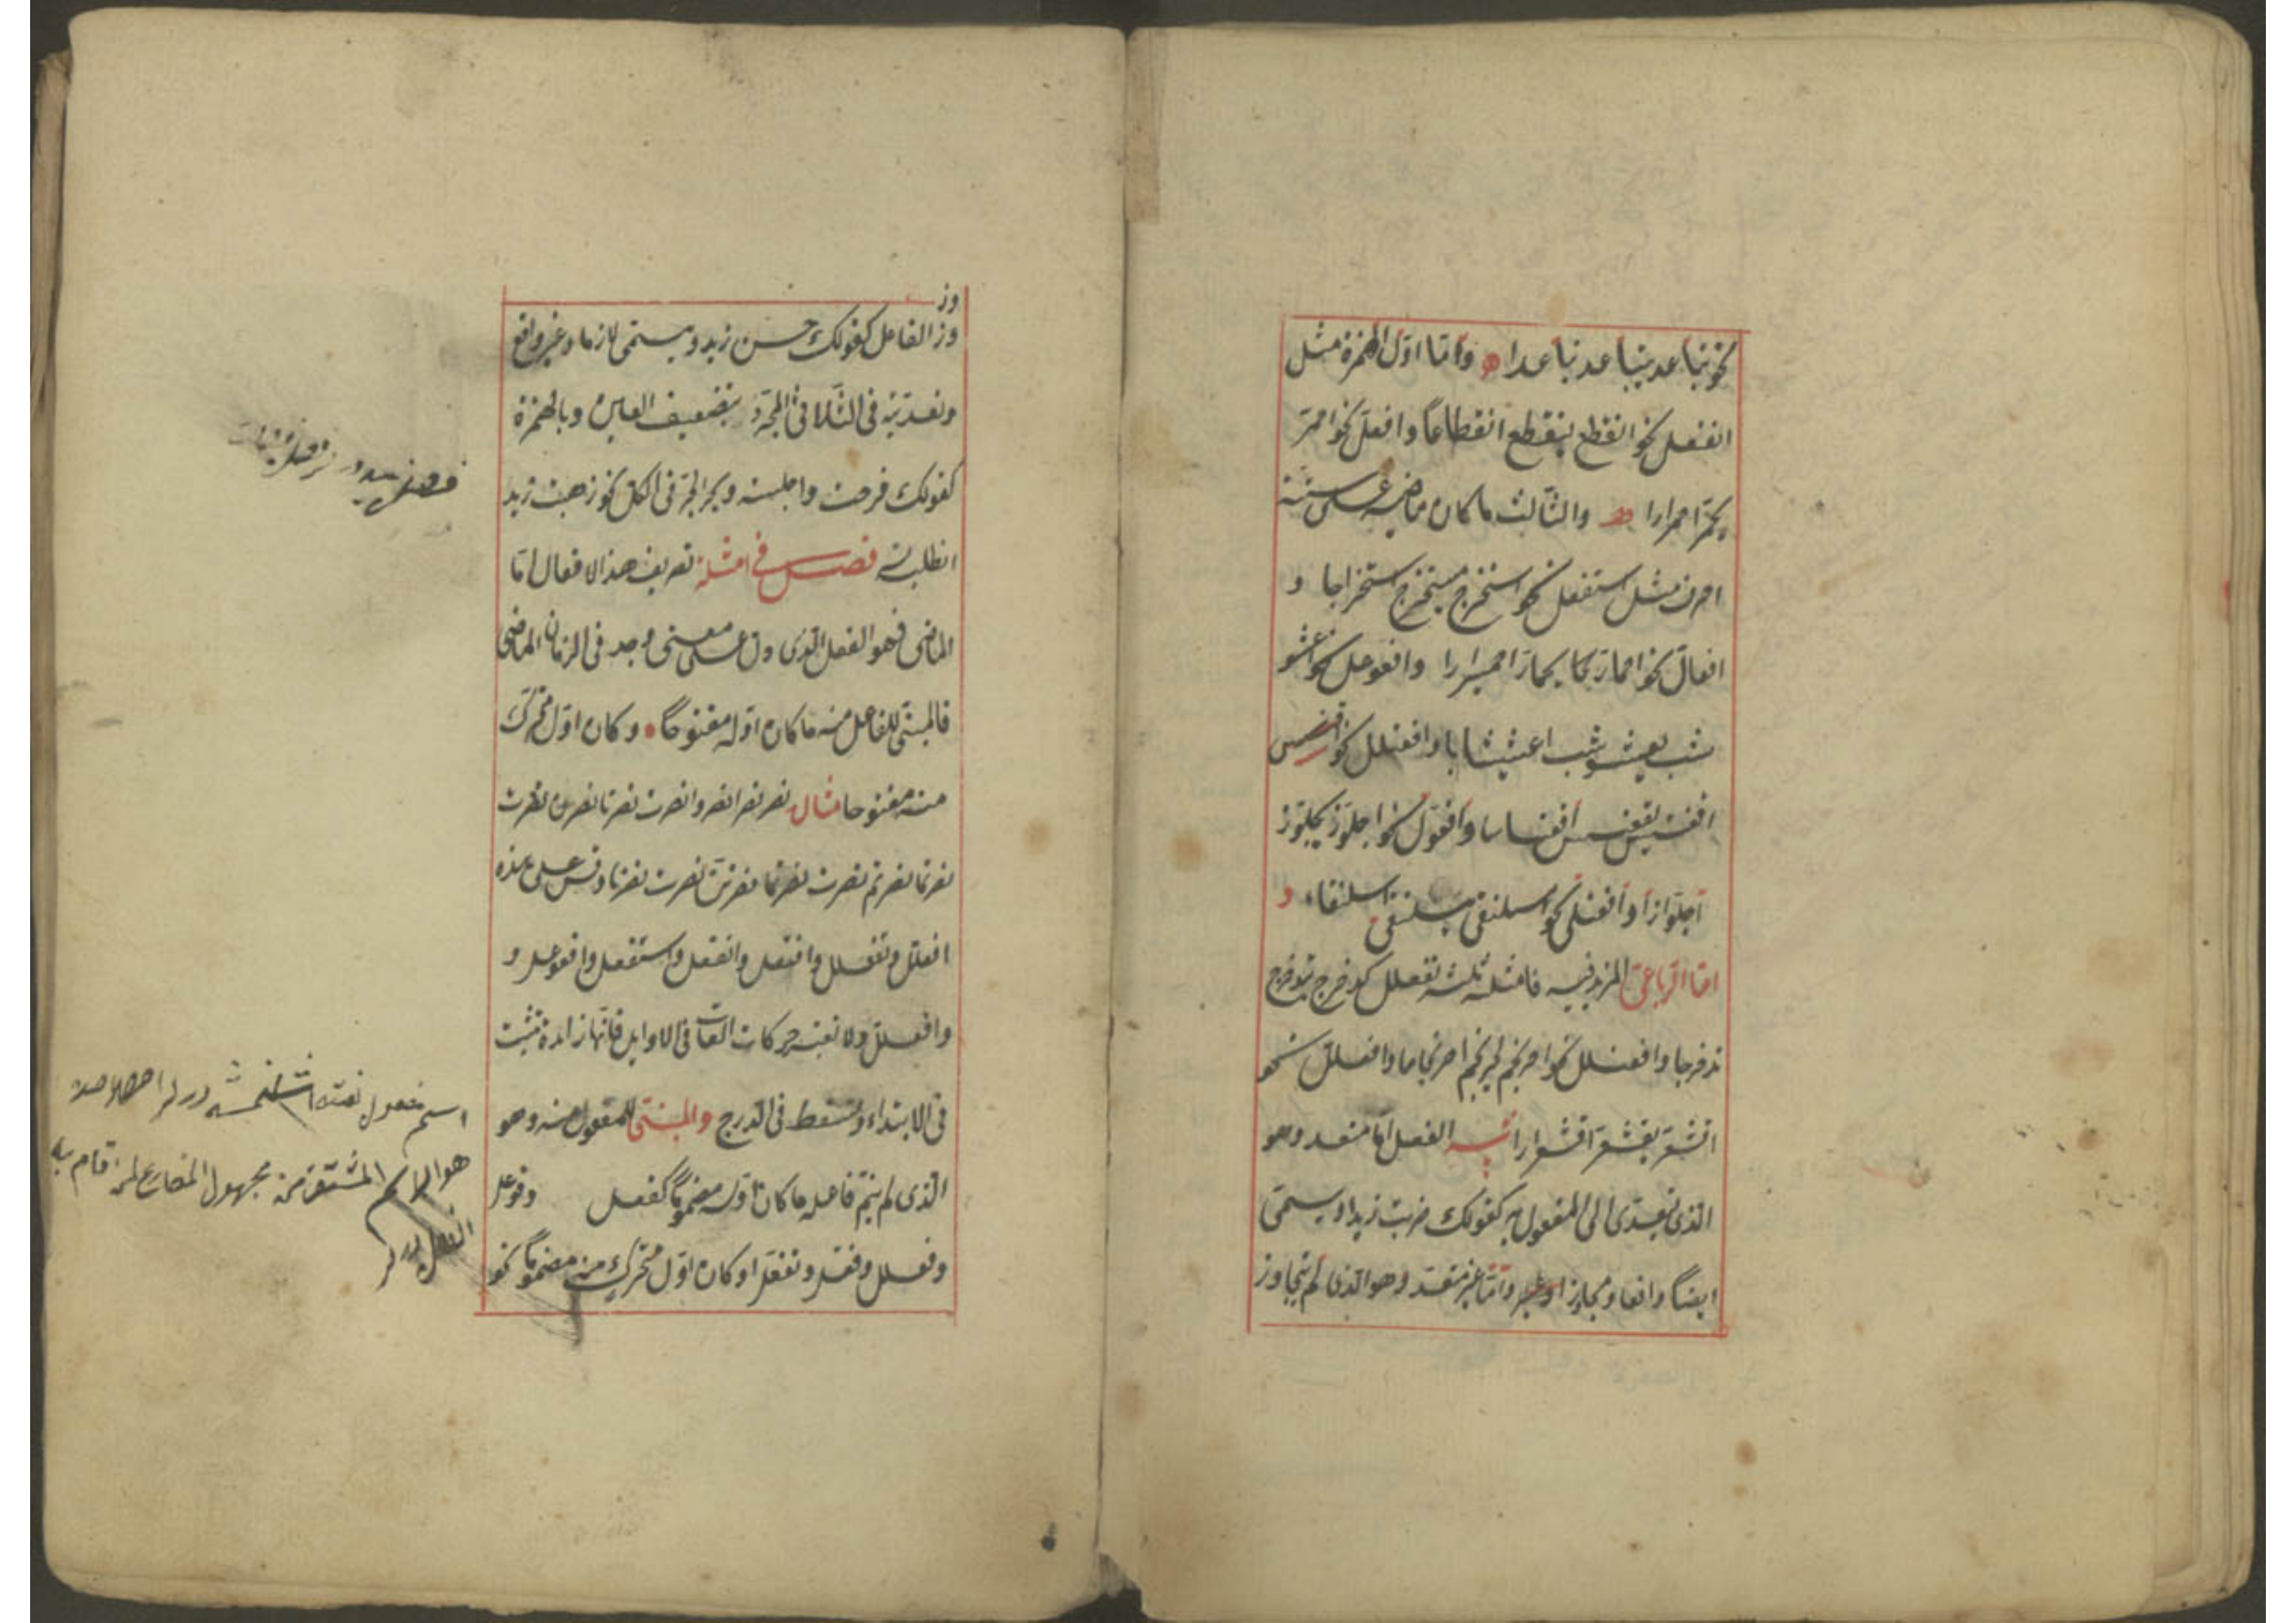 نحو تباعد يتباعد تباعدا واما اول الهمزة مثل
انفعل نحو انقطع ينقطع انقطاعا وافعل نحو احمر
يحمر احمرارا والثالث ما كان ماضيه على ستة
احرف مثل استفعل نحو استخرج يستخرج استخراجا و
افعال نحو احمار يحمار احميرارا وافعوعل نحو اعشو
شب يعشوشب اعشيشابا وافعنلل نحو
اقعنسس يقعنسس اقعنساسا وافعول نحو اجلوز يجلوز
اجلوازا وافعنلى نحو اسلنقى يسلنقى اسلنقاء و
اما الرباعى المزيد فيه فامثلته ثلثة تفعلل كتدخرج يتدخرج
تدخرجا وافعنلل نحو احرنجم يحرنجم احرنجاما وافعلل نحو
اقشعر يقشعر اقشعرارا تنبيه الفعل اما متعد وهو
الذى يتعدى الى المفعول به كقولك ضربت زيدا ويسمى
ايضا واقعا ومجاوزا واما غير متعد وهو الذى لم يتجاوز
وز
وز الفاعل كقولك حسن زيد ويسمى لازما وغير واقع
وتعديته فى الثلاثى المجرد بتضعيف العين وبالهمزة
كقولك فرحت واجلسته وبحر الجر فى الكل نحو ذهبت زيد
انطلقت فصل فى امثلة تصريف هذه الافعال اما
الماضى فهو الفعل الذى دل على معنى وجد فى الزمان الماضى
فالمبنى للفاعل منه ما كان اوله مفتوحا وكان اول متحرك
منه مفتوحا مثال نصر نصرا نصروا نصرت نصرتا نصرن نصرت
نصرتما نصرتم نصرت نصرتما نصرتن نصرت نصرنا وقس على هذه
افعلل وتفعلل وافتعل وانفعل واستفعل وافعوعل و
وافعلل ولا تعتبر حركات الفات فى الاوايل فانها زائدة تثبت
فى الابتداء وتسقط فى الدرج والمبنى للمفعول منه وهو
الذى لم يتم فاعله ما كان اوله مضموما كفعل وفوعل
وفعلل وفعل وتفعل او كان اول متحرك منه مضموما نحو
اسم مفعول
هو الاسم المشتق من مجهول المضارع لمن قام به
الفعل